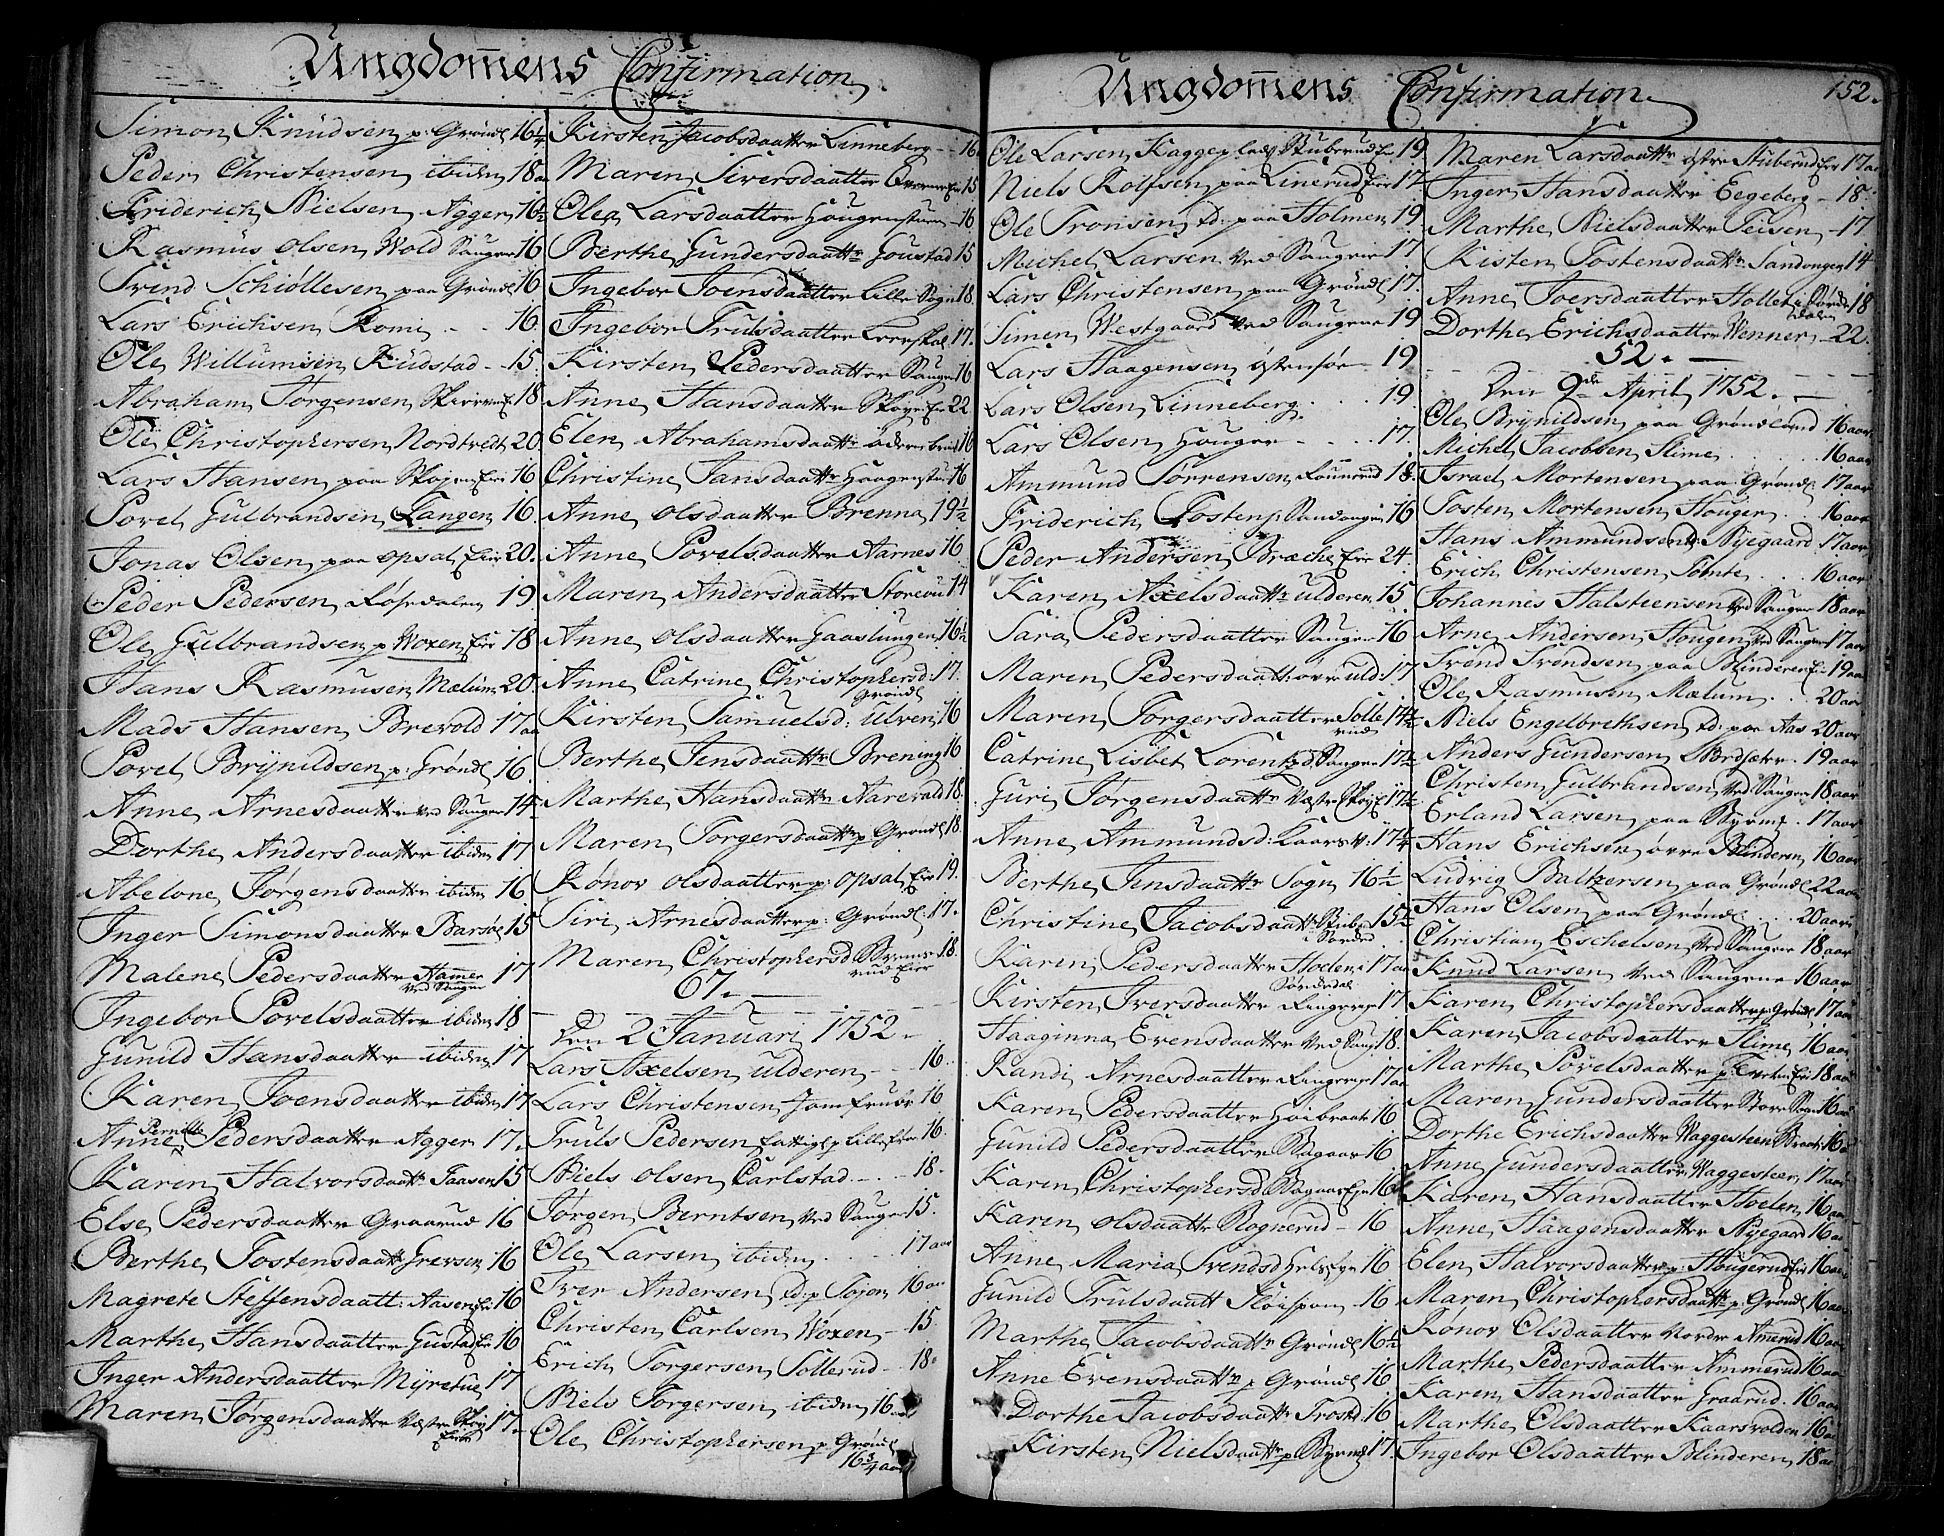 Ungdom̄ens Confirmation
Simon Knudsen p. Grønl 16¼
Peder Christensen ibiden 18 a
Friderich Nielsen Agger 16½
Rasmus Olsen Wold Sauger 16
Svend Schiøllesen paa Grønl 16
Lars Erichsen Rom 16.
Ole Willumsen Rudstad 15.
Abraham Jørgensen 18
Ole Christophersen Nordtvedt 20.
Lars Hansen paa Skøjen Eier 16
Povel Gulbrandsen Langen 16.
Jonas Olsen paa Opsal Eier 20.
Peder Pedersen Røhrdalen 19
Ole Gulbrandsen p Woxen Eier 18
Hans Rasmusen Mælum 20.
Mads Hansen Brevold 17 aa
Povel Brynildsen p: Grønl 16.
Anne Arnesdaatter ved Sauger 14
Dorthe Andersdaatter ibiden 17
Abelone Jørgensdaatter ibiden 16
Inger Simonsdaatter Barsøe 15
Malene Pedersdaatter Hamer 17
ved Sauger
Ingebor Povelsdaatter ibiden 18
Gunild Hansdaatter ibiden 17
Karen Joensdaatter ibiden 17
Pernille
Anne Pedersdaatter Agger 17.
Karen Halvorsdaattr Taasen 15
Else Pedersdaatter Graarud 16
Berthe Tostensdaattr Grevsen 16
Magrete Steffensdaatt: Aasen Ei 16
Marthe Hansdaatter Gustad Ei 16
Inger Andersdaatter Myretue 17
Maren Jørgensdaatter Væstre Skøy 17.
Eier
Kirsten Jacobsdaatter Linneberg 16.
Maren Siversdaatter 15
Olea Larsdaatter Hougenstuen 16
Berthe Gundersdaattr Goustad 15
Ingebor Joensdaatter Lille Sogn 18.
Ingebor Trulsdaatter 17.
Kirsten Pedersdaatter Sauger 16
Anne Hansdaatter Skøyen Eier 22
Elen Abrahamsdaattr 16
Christine Jansdaattr Haagenstu 16
Anne Olsdaatter Brenna 19½
Anne Povelsdaatter Aarnes 16
Maren Andersdaatter 14
Anne Olsdaatter Gaaslungen 16½
Anne Catrine Christophersd: 17.
Grønl
Kirsten Samuelsd: Ulven 16
Berthe Jensdaattr Brening 16
Marthe Hansdaattr Aarevold 18.
Maren Torgersdaattr p Grønl 18.
Rønov Olsdaatter p: Opsal Eie 19.
Siri Arnesdaatter p: Grønl. 17.
Maren Christophersd 18.
67.
Den 2 Januari 1752.
Lars Axelsen Ulderen 16.
Lars Christensen 16
Truls Pedersen 16.
Niels Olsen Carlstad 18.
Jørgen Berntsen ved Sauger 15.
Ole Larsen ibiden 17 aar
Iver Andersen 16 aa
Christen Carlsen Woxen 15.
Erich Torgersen Sollerud 18.
Niels Torgersen ibiden 16.
Ole Christophersen p Grønl
16¾ aar
Ungdom̄ens Confirmation
152.
Ole Larsen 19
Niels Rolfsen paa Linerud Eier 17
Ole Tronsen td: paa Holmen 19
Michel Larsen ved Saugene 17
Lars Christensen paa Grønl 17.
Simen Westgaard ved Saugene 19
Lars Haagensen Østensøe 19
Lars Olsen Linneberg 19.
Lars Olsen Houger 17.
Ammund Sørrensen 18.
Friderich Tostens: Sandungen 16
Peder Andersen Bræche Eier 24.
Karen Axelsdaattr Ulderen 15
Sara Pedersdaatter Sauger 16
Maren Pedersdaatt: øvre uld: 17
Maren Torgersdaatter Solle 14½
rud
Catrine Lisbet Lorentzd. Sauger 17½
Guri Jørgensdaattr Væstre Skøy E 17½
Anne Ammundsd: Kaarsv: 17¼
Berthe Jensdaattr Sogn 16½
Christine Jacobsdaattr 15½
Karen Pedersdaatter Hoelen i 17 aa
Sørkedal
Kirsten Iversdaatter Ringerige 17
Haaginna Evensdaatter ved Saug 18.
Randi Arnesdaatter Ringerige 17 aa
Karen Pedersdaatter Høibraat 16
Gunild Pedersdaatter Bagaas 16
Karen Christophersd Bagaas Eje 16
Karen Olsdaatter Rognerud 16
Anne Maria Svendsd 16
Gunild Trulsdaatt 16
Marthe Jacobsdaattr Grønl 16½
Anne Evensdaattr p Grønl 16
Dorthe Jacobsdaattr Trosd 16
Kirsten Nielsdaattr p 17.
Maren Larsdaattr østre Stuberud Eie 17 aa
Inger Hansdaatter Eegeberg 18.
Marthe Nielsdaatter Teisen 17
Kisten Tostensdaattr Sandungen 14
Anne Joersdaatter Hollet i Sørke 18
dalen
Dorthe Erichsdaatter Wenner 22.
52.
Den 9de April 1752.
Ole Brynildsen paa Grønland 16 aar
Michel Jacobsen Slime 16 aar
Israel Mortensen paa Grønl 17 aar
Tosten Mortensen Houger 16 aar
Hans Ammundsen Nyegaard 17 aar
Erich Christensen Tomte 16 aar
Johannis Halsteensen ved Sauger 18 aar
Arne Andersen Hougen ved Sauger 17 aar
Svend Svendsen paa Blinderen Ei 19 aa
Ole Rasmusen Mælum 20 aar
Niels Engelbrethsen td: paa Aas 20 aar
Anders Gundersen Nordsæter 19 aar
Christen Gulbrandsen ved Sauger 18 aar
Erland Larsen paa 17 aar
Hans Erichsen øvre Blinderen 16 aar
Ludvig Baltzersen paa Grønl 22 aar
Hans Olsen paa Grønl 20 aar
Christian Eschelsen ved Saugene 18 aar
Knud Larsen ved Saugene 16 aar
Karen Christophersdaatter p Grønl 17 aa
Karen Jacobsdaatter Slime 16 aar
Marthe Povelsdaatter p Tveten Eie 18 aa
Maren Gundersdaatter Store Sogn 16 aa
Dorthe Erichsdaatter Waggesteen 16 a
Anne Gundersdaatter Waggesteen 17 aar
Karen Hansdaatter Hoelen 16 aa
Anne Haagensdaatter Nyegaard 16 aa
Elen Halvorsdaatter p: Hougerud Eie 16 aa
Maren Christophersdaattr p: Grønl 16 aa
Rønov Olsdaatter Nordre Amerud 16 aa
Marthe Pedersdaatter Ammerud 16 aa
Karen Hansdaatter Graarud 16 aa
Marthe Olsdaatter Kaarsvolden 16 aa
Ingebor Olsdaatter Blinderen 18 aa